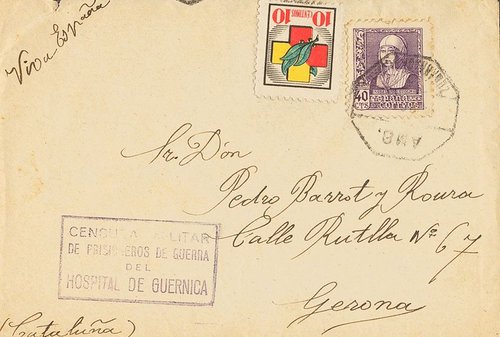 Viva España
10 CENTIMOS 10
40
CTS
ESPAÑA
CORREOS
AMB.
Sr. Dón
Pedro Barrot y Roura
Calle Rutlla Nº 67
Gerona
(Cataluña)
CENSURA MILITAR
DE PRISIONEROS DE GUERRA
DEL
HOSPITAL DE GUERNICA